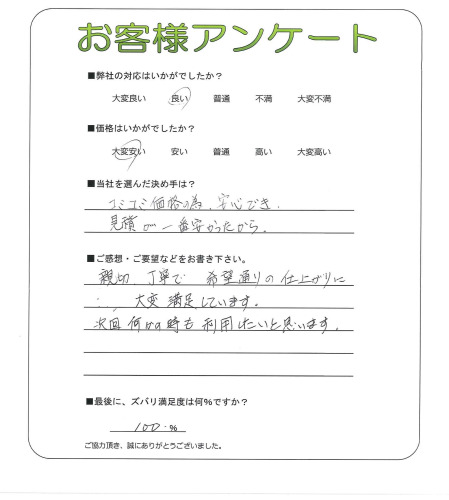 お客様アンケート
■弊社の対応はいかがでしたか？
大変良い 良い 普通 不満 大変不満
■価格はいかがでしたか？
大変安い 安い 普通 高い 大変高い
■当社を選んだ決め手は？
コミコミ価格の為、安心でき、
見積が一番安かったから。
■ご感想・ご要望などをお書き下さい。
親切、丁寧で 希望通りの仕上がりに
大変満足しています。
次回何かの時も利用したいと思います。
■最後に、ズバリ満足度は何％ですか？
100 %
ご協力頂き、誠にありがとうございました。